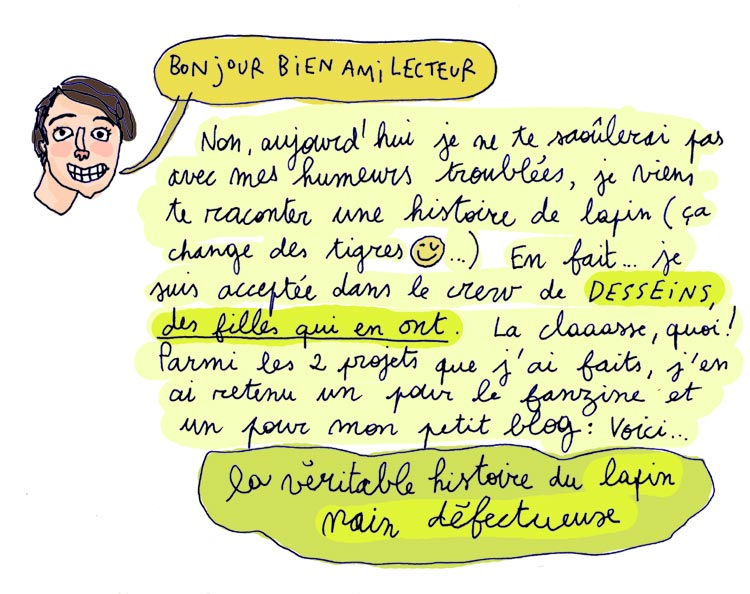 BONJOUR BIEN AMI LECTEUR
Non, aujourd'hui je ne te saoûlerai pas
avec mes humeurs troublées, je viens
te raconter une histoire de lapin (ça
change des tigres ...) En fait... je
suis acceptée dans le crew de DESSEINS,
des filles qui en ont. La claaasse, quoi!
Parmi les 2 projets que j'ai faits, j'en
ai retenu un pour le fanzine et
un pour mon petit blog: Voici...
la véritable histoire du lapin
nain défectueuse